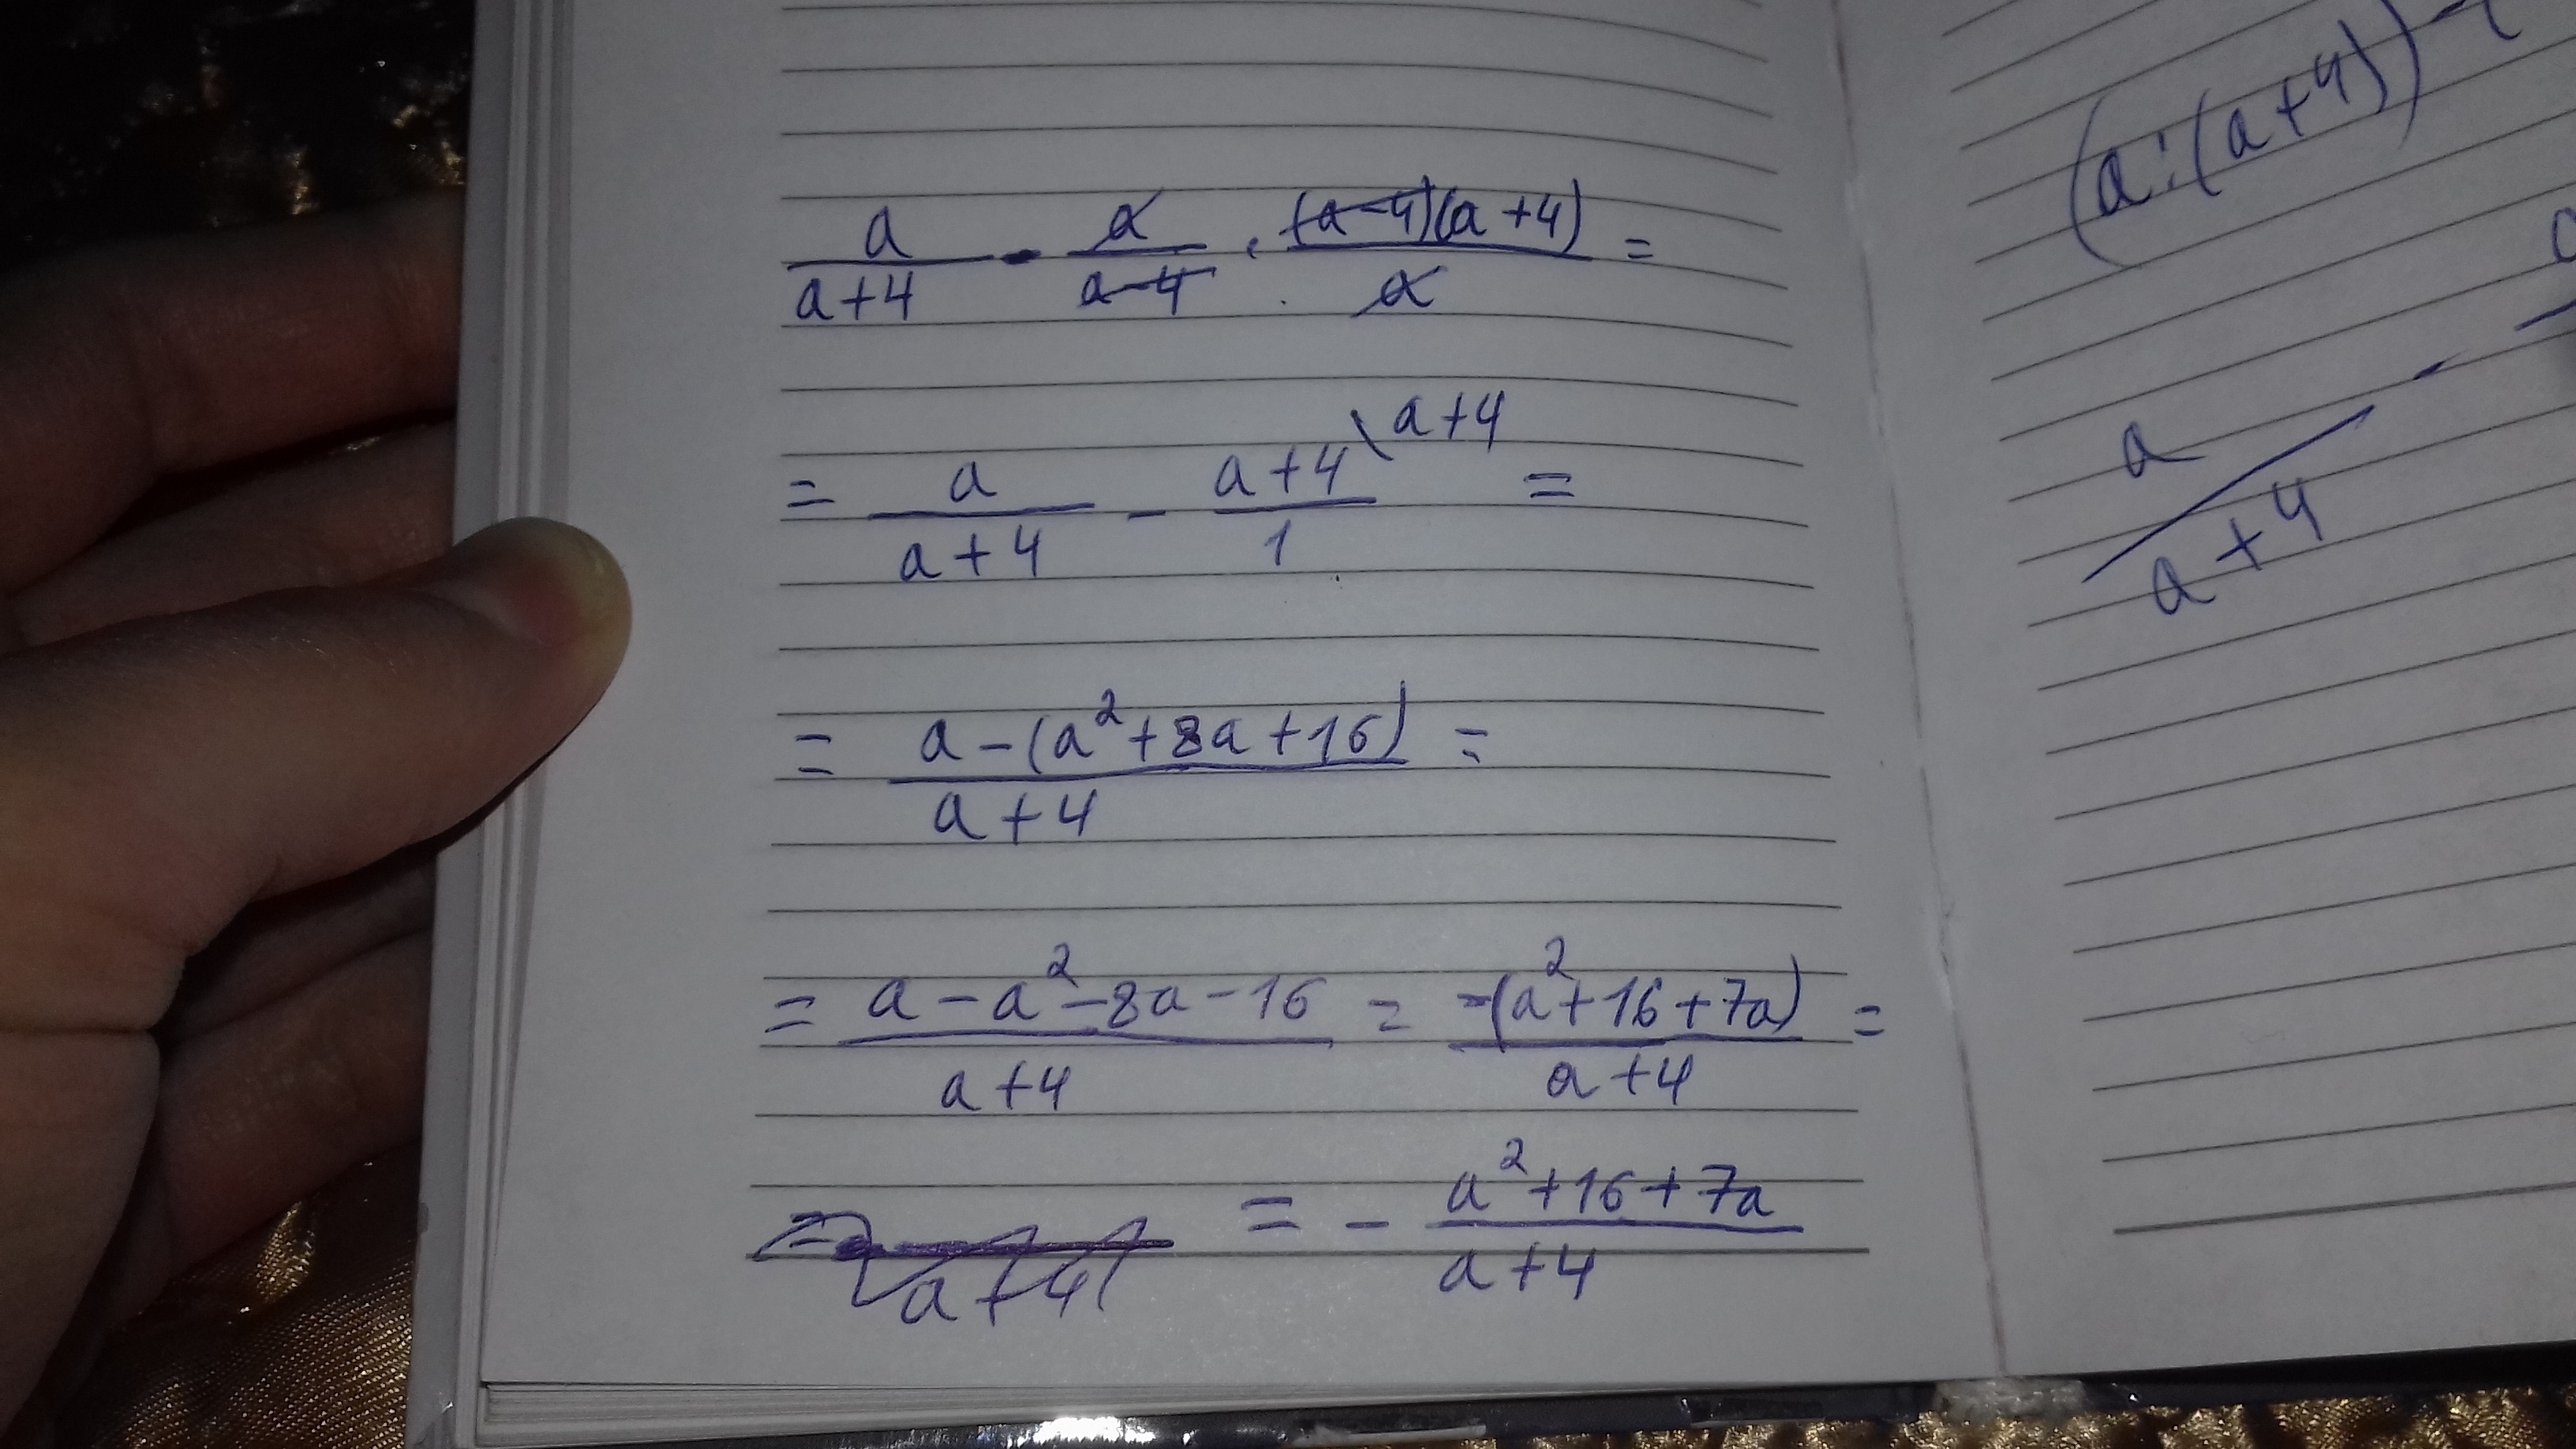 a/(a+4) - a/(a-4) · (a-4)(a+4)/a =
= a/(a+4) - (a+4)/1 \ a+4 =
= (a-(a²+8a+16))/(a+4) =
= (a-a²-8a-16)/(a+4) = -(a²+16+7a)/(a+4) =
= - (a²+16+7a)/(a+4)
(a:(a+4)) -
a/(a+4) -